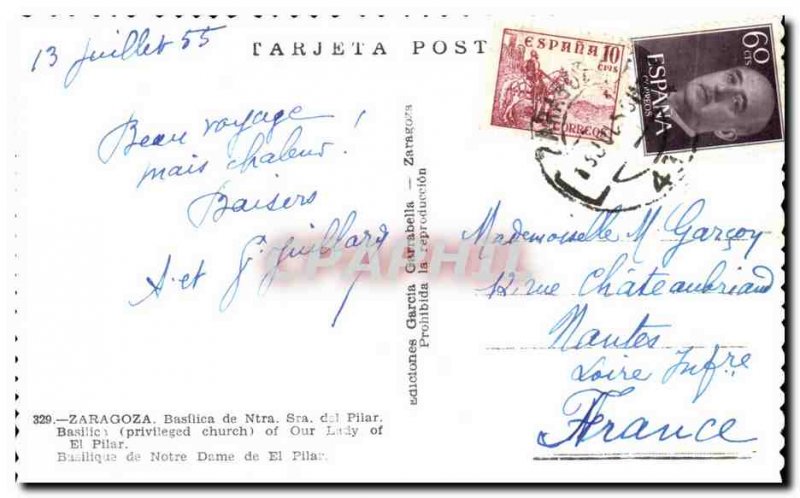 13 Juillet 55
TARJETA POST
ESPAÑA 10
CTS
CORREOS
60
CTS
ESPAÑA
CORREOS
Beau voyage
mais chaleur !
Baisers
A. et G. Guillard
CPAPHIL
Ediciones García Garrabella — Zaragoza
Prohibida la reproducción
Mademoiselle M. Garçon
12, rue Châteaubriand
Nantes
Loire Infre
France
329.—ZARAGOZA. Basílica de Ntra. Sra. del Pilar.
Basilic (privileged church) of Our Lady of
El Pilar.
Basilique de Notre Dame de El Pilar.